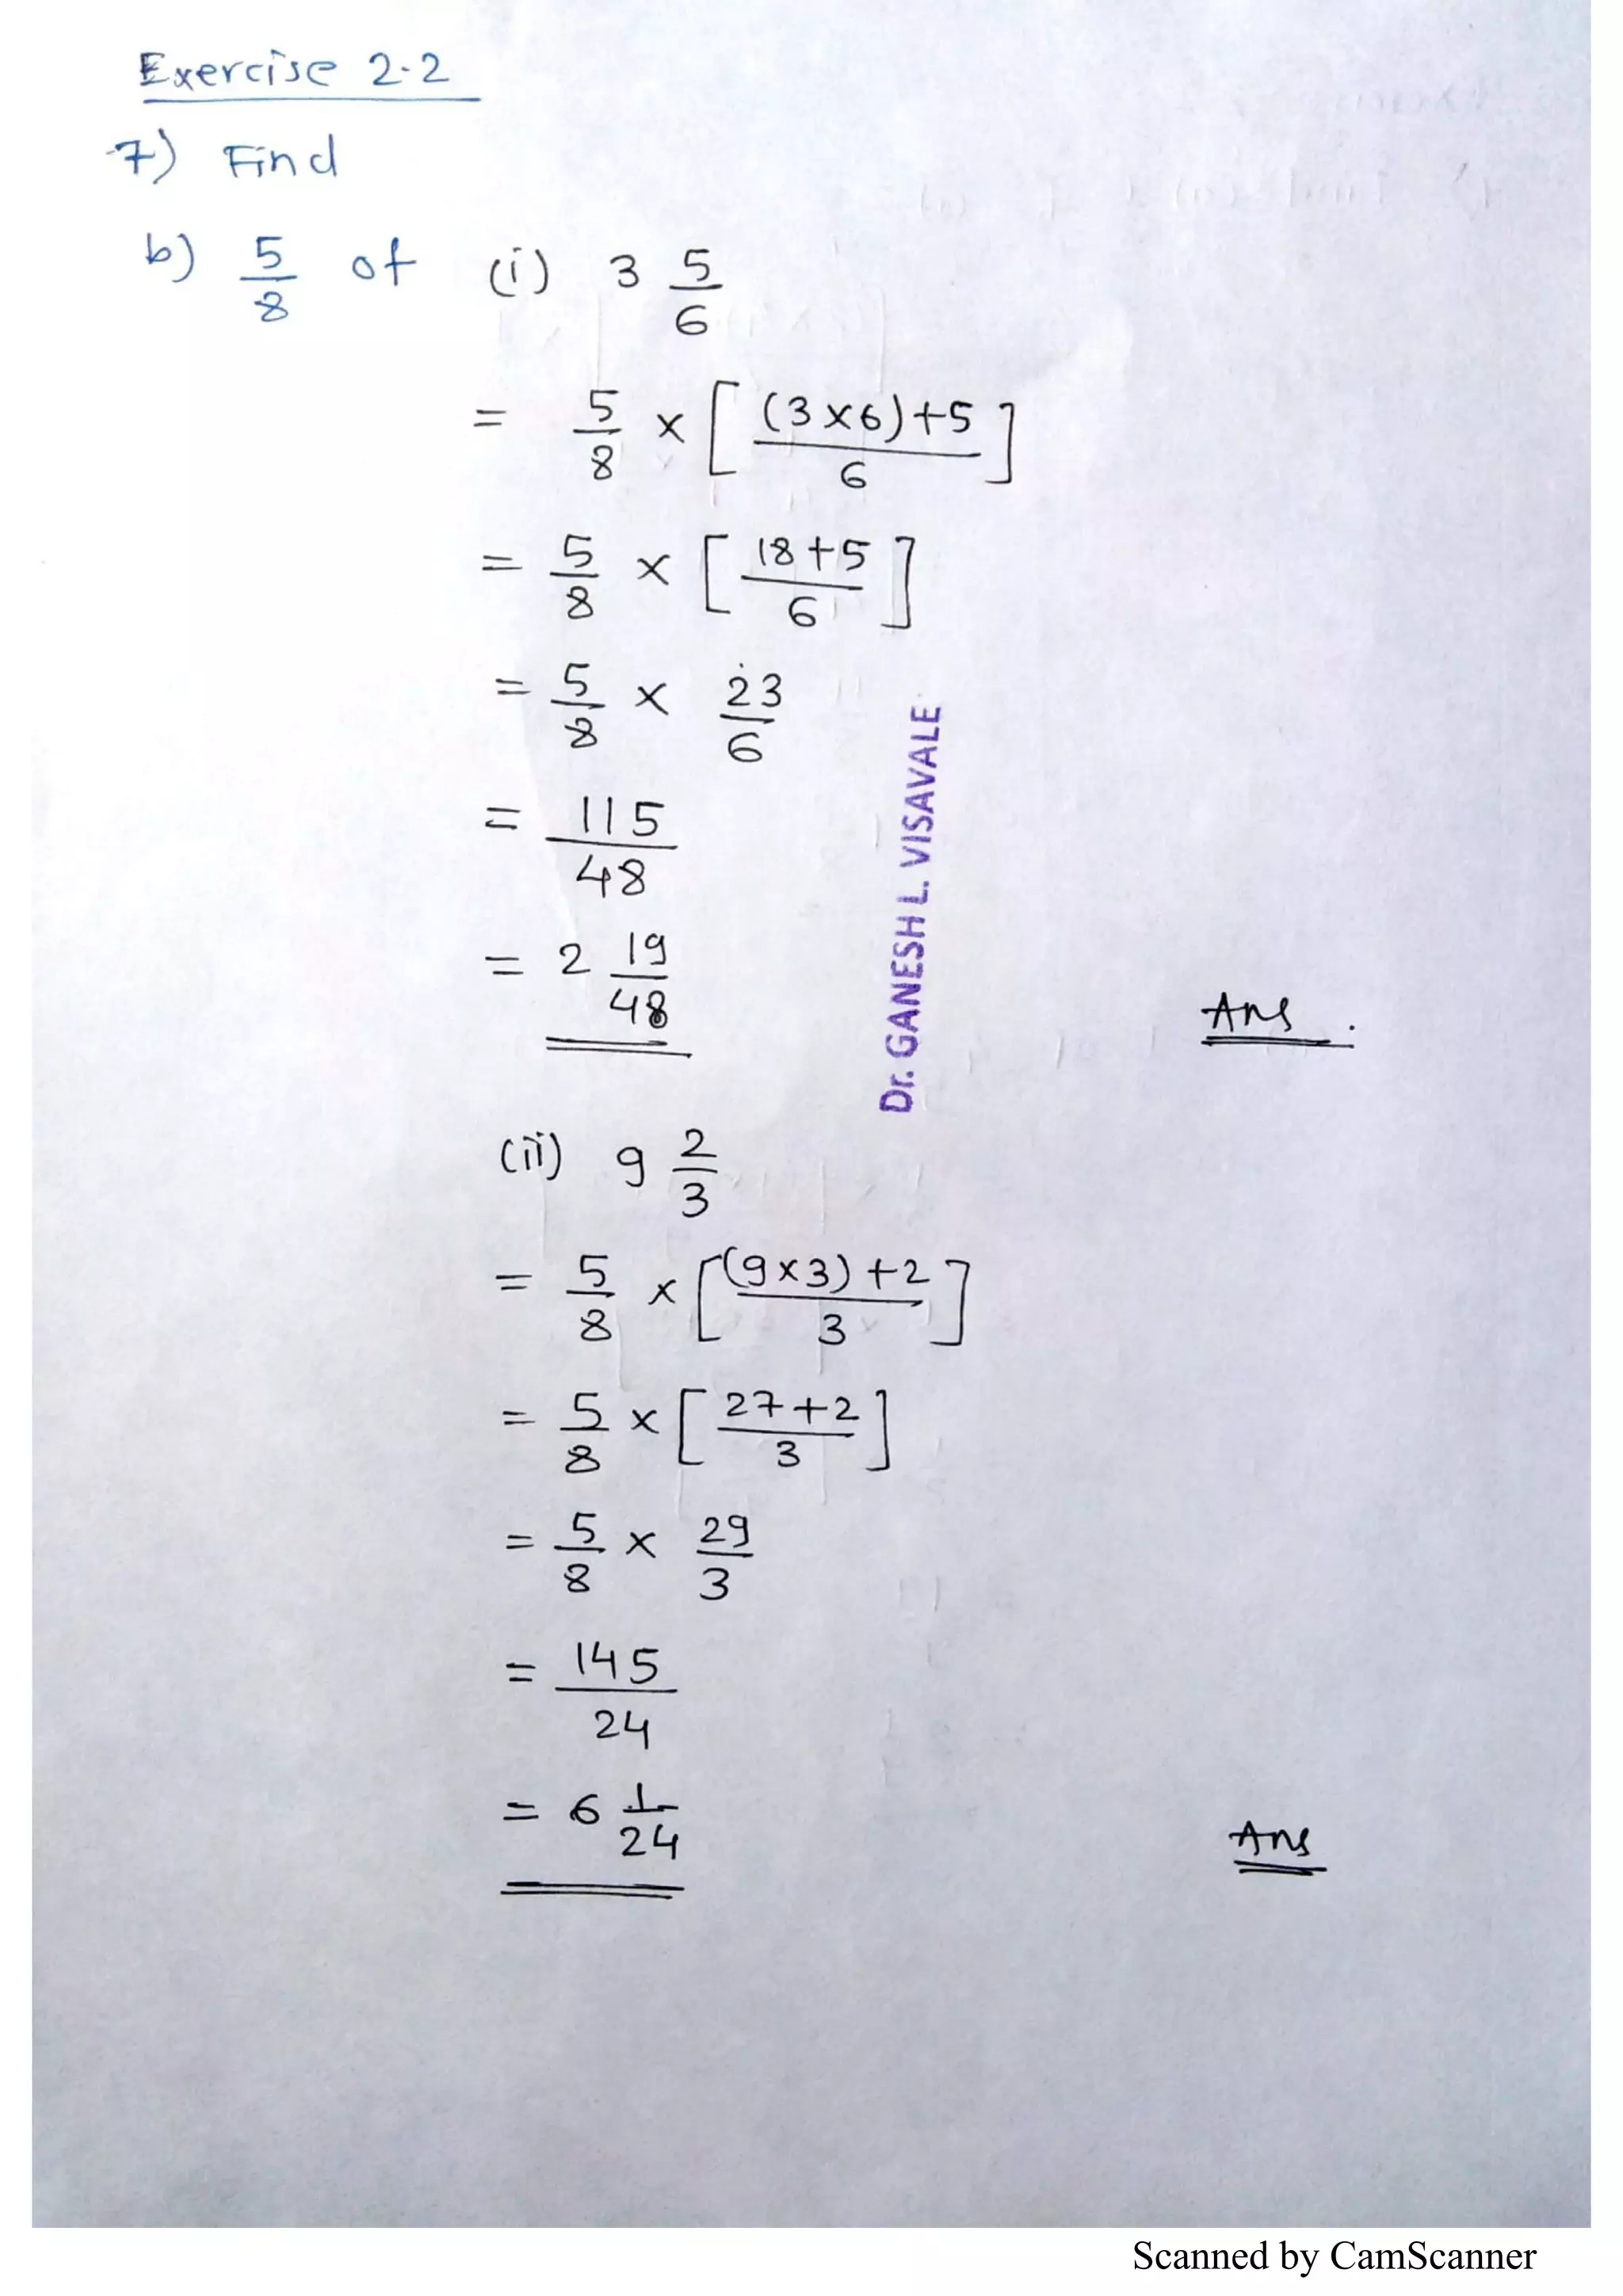 Exercise 2.2
7) Find
b) 5/8 of (i) 3 5/6
= 5/8 × [ (3×6)+5 / 6 ]
= 5/8 × [ 18+5 / 6 ]
= 5/8 × 23/6
= 115/48
= 2 19/48
Ans.
Dr. GANESH L. VISAVALE
(ii) 9 2/3
= 5/8 × [ (9×3)+2 / 3 ]
= 5/8 × [ 27+2 / 3 ]
= 5/8 × 29/3
= 145/24
= 6 1/24
Ans
Scanned by CamScanner